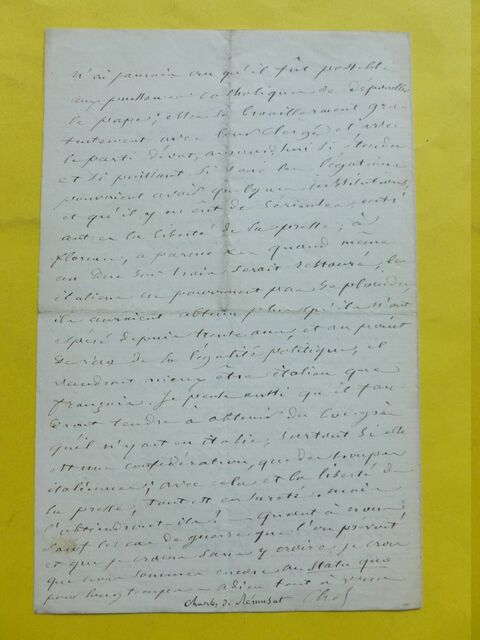 n'ai jamais cru qu'il fût possible
aux puissances catholiques de dépouiller
le pape; elles se brouilleraient gra-
tuitement avec leur clergé et avec
le parti dévot, aujourd'hui si étendu
et si puissant. Si donc les légations
pouvaient avoir quelques institutions,
et qu'il y en eût de sérieuses,
la liberté de la presse, à
Florence, à Parme &c quand même
un Duc serait restauré, les
italiens ne pourraient pas se plaindre
ils auraient obtenu plus qu'ils n'ont
espéré depuis trente ans, et au point
de vue de la légalité politique, il
vaudrait mieux être italien que
français. Je pense aussi qu'il fau-
drait tendre à obtenir du congrès
qu'il n'y ait en Italie, surtout si elle
est une confédération, que des troupes
italiennes; avec cela et la liberté de
la presse, tout est en sureté. mais
l'obtiendront-ils? — quant à nous
sauf le cas de guerre que l'on prévoit
et que je crains sans y croire, je crois
que nous sommes encore au statu quo
pour longtemps — adieu tout à vous
Charles de Rémusat Ch R